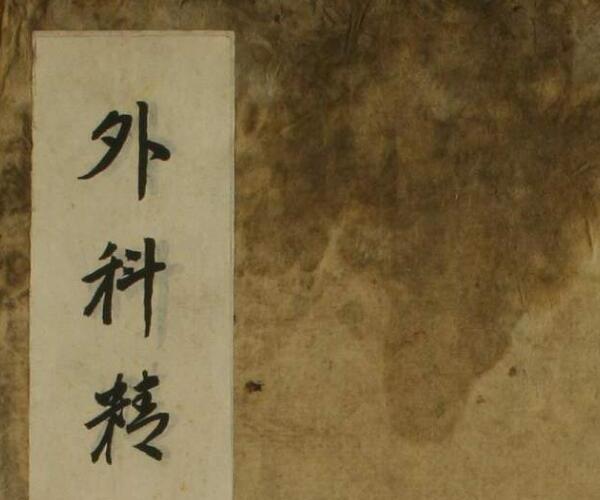 外科精